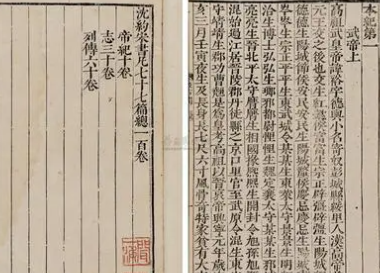 本紀第一
武帝上
高祖武皇帝諱裕字德輿小名寄奴彭城縣綏里人漢高帝
元王交之後也交生紅懿侯富富生宗正辟彊辟彊生陽城
德生陽城節侯安民安民生陽城釐侯慶忌慶忌生陽城
生宗正平平生東武城令某某生東萊太守景景生明
洽生博士弘弘生琅邪都尉悝悝生魏定襄太守某某生邪
亮亮生晉北平太守膺膺生相國掾熙熙生開封令旭孫旭
混始過江居晉陵郡丹徒縣之京口里官至武原令混生東
郡功曹翹是爲皇考高祖以晉哀帝興寧元年歲
亥三月壬寅夜生及長身長七尺六寸風骨奇特家貧有大
沈約宋書凡七十七篇總一百卷
帝紀十卷
志三十卷
列傳六十卷